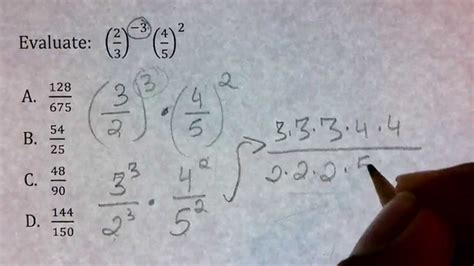 Evaluate: (2/3)^-3 (4/5)^2
A. 128/675
B. 54/25
C. 48/90
D. 144/150
(3/2)^3 · (4/5)^2
3^3/2^3 · 4^2/5^2
3·3·3·4·4
2·2·2·5